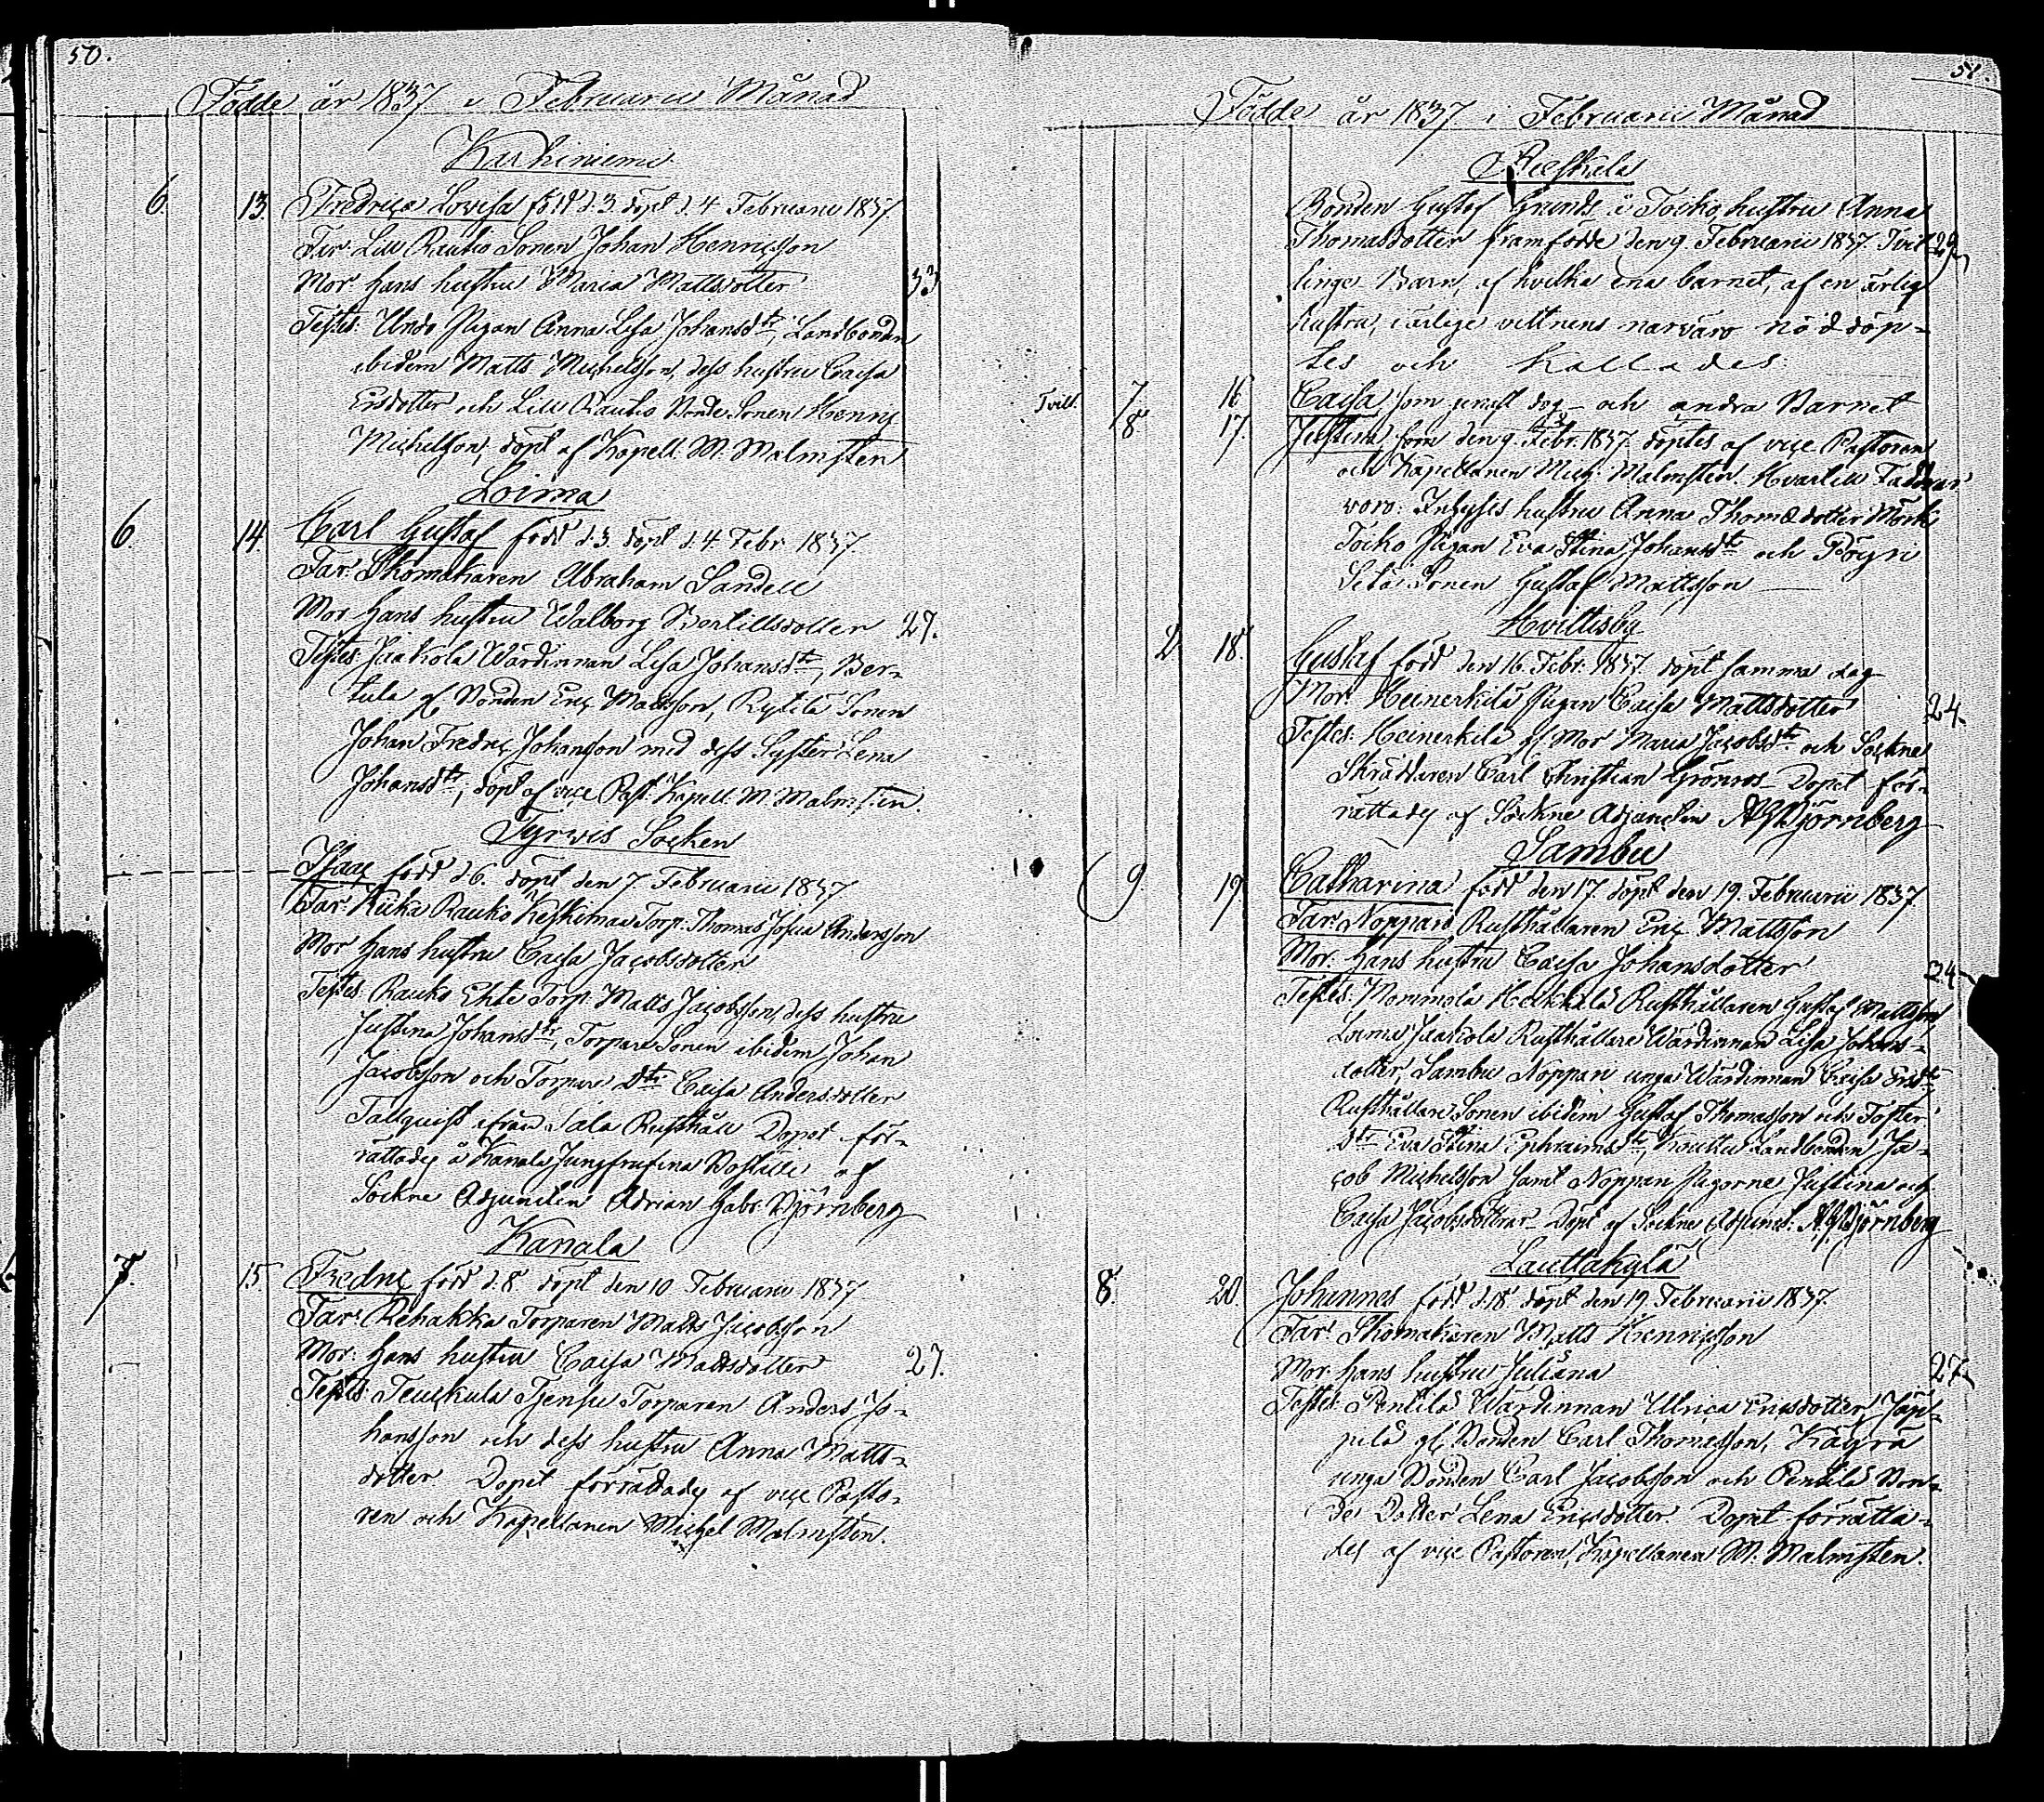 50.
Födde år 1837 i Februarii Månad
Karhiniemi
6. 13. Fredrica Lovisa född d. 3. döpt d. 4 Februarii 1837
Far: Lill Raukio Sonen Johan Henricsson
Mor hans hustru Maria Mattsdotter 33
Testes: Undo Pigan Anna Lisa Johansdtr, Landbonden
ibidem Matts Michelsson, dess hustru Caisa
Ersdotter och Lill Raukio Bonde Sonen Henric
Michelsson, döpt af Kapell. M. Malmsten
Loima
6. 14. Carl Gustaf född d. 3. döpt d. 4 Febr. 1837.
Far: Skomakaren Abraham Sandell
Mor hans hustru Walborg Bertillsdotter 27.
Testes: Jaakola Wärdinnan Lisa Johansdtr, Ber-
tula gl. Bonden Eric Mattsson, Rytilä Sonen
Johan Fredric Johansson med dess Syster Lena
Johansdtr, döpt af vice Past. Kapell. M. Malmsten.
Tyrvis Socken
Isac född d. 6. döpt den 7. Februarii 1837
Far: Kiika Rauko Keskimaa Torp. Thomas Josua Andersson
Mor hans hustru Caisa Jacobsdotter
Testes: Rauko Ehte Torp. Matts Jacobsson, dess hustru
Justina Johansdtr, Torpare Sonen ibidem Johan
Jacobsson och Torpare Dtr Caisa Andersdotter
Tallquist ifrån Sala Rusthåll Dopet för-
rättades å Kanala Jungfrusina Boställe af
Sockne Adjuncten Adrian Gabr. Björnberg
Kanala
7. 15. Fredric född d. 8. döpt den 10 Februarii 1837
Far: Rehakka Torparen Matts Jacobsson
Mor: hans hustru Caisa Mattsdotter 27.
Testes: Teuckula Tjensu Torparen Anders Jo-
hansson och dess hustru Anna Matts-
dotter. Dopet förrättades af vice Pasto-
ren och Kapellanen Michel Malmsten.
51.
Födde år 1837 i Februarii Månad
Raeskala
Bonden Gustaf Grunds i Tocko, hustru Anna
Thomasdotter framfödde den 9. Februarii 1837. Tvil- 29
linge Barn, af hvilka ena barnet, af en ärlig
hustru, i ärlige vittnens närvaro nöddöp-
tes och kallades:
Tvill. 7 16 Caisa som genast dog - och andra Barnet
8 17. Justina som den 9. Febr. 1837. döptes af vice Pastoren
och Kapellanen Mich. Malmsten. Hvartill Faddrar
voro: Inhyses hustru Anna Thomasdotter Mörk
Tocko Pigan Eva Stina Johansdtr och Pöyri
Seta Sonen Gustaf Mattsson
Hvittisby
2 18. Gustaf född den 16. Febr. 1837 döpt samma dag
Mor: Heinerkilä Pigan Caisa Mattsdotter 24.
Testes: Heinerkilä gl. Mor Maria Jacobsdtr och Sockne
Skräddaren Carl Christian Grönroos - Dopet för-
rättades af Sockne Adjuncten A G Björnberg
Sambu
9 19 Catharina född den 17. döpt den 19. Februarii 1837
Far: Noppari Rusthållaren Eric Mattsson
Mor: hans hustru Caisa Johansdotter 24
Testes: Mommola Heikkilä Rusthållaren Gustaf Mattsson
Loima Jaakola Rusthållare Wärdinnan Lisa Johans-
dotter, Sambu Noppari unga Wärdinnan Caisa Ersdtr
Rusthållare Sonen ibidem Gustaf Thomasson och Foster
Dtr Eva Stina Ephraimsdtr, Landbonden Ja-
cob Michelsson samt Noppari Pigorne Justina och
Caisa Jacobsdöttrar - Döpt af Sockne Adjunct: A G Björnberg
Lauttakylä
8. 20. Johannes född d. 18 döpt den 19. Februarii 1837.
Far: Skomakaren Matts Henricsson
Mor hans hustru Juliana 27
Testes: Pentilä Wärdinnan Ulrica Ericsdotter, Jäp-
pilä gl. Bonden Carl Thomasson, Käyrä
unga Bonden Carl Jacobsson och Pentilä Bon-
de Dotter Lena Ericsdotter. Dopet förrätta-
des af vice Pastoren, Kapellanen M. Malmsten.